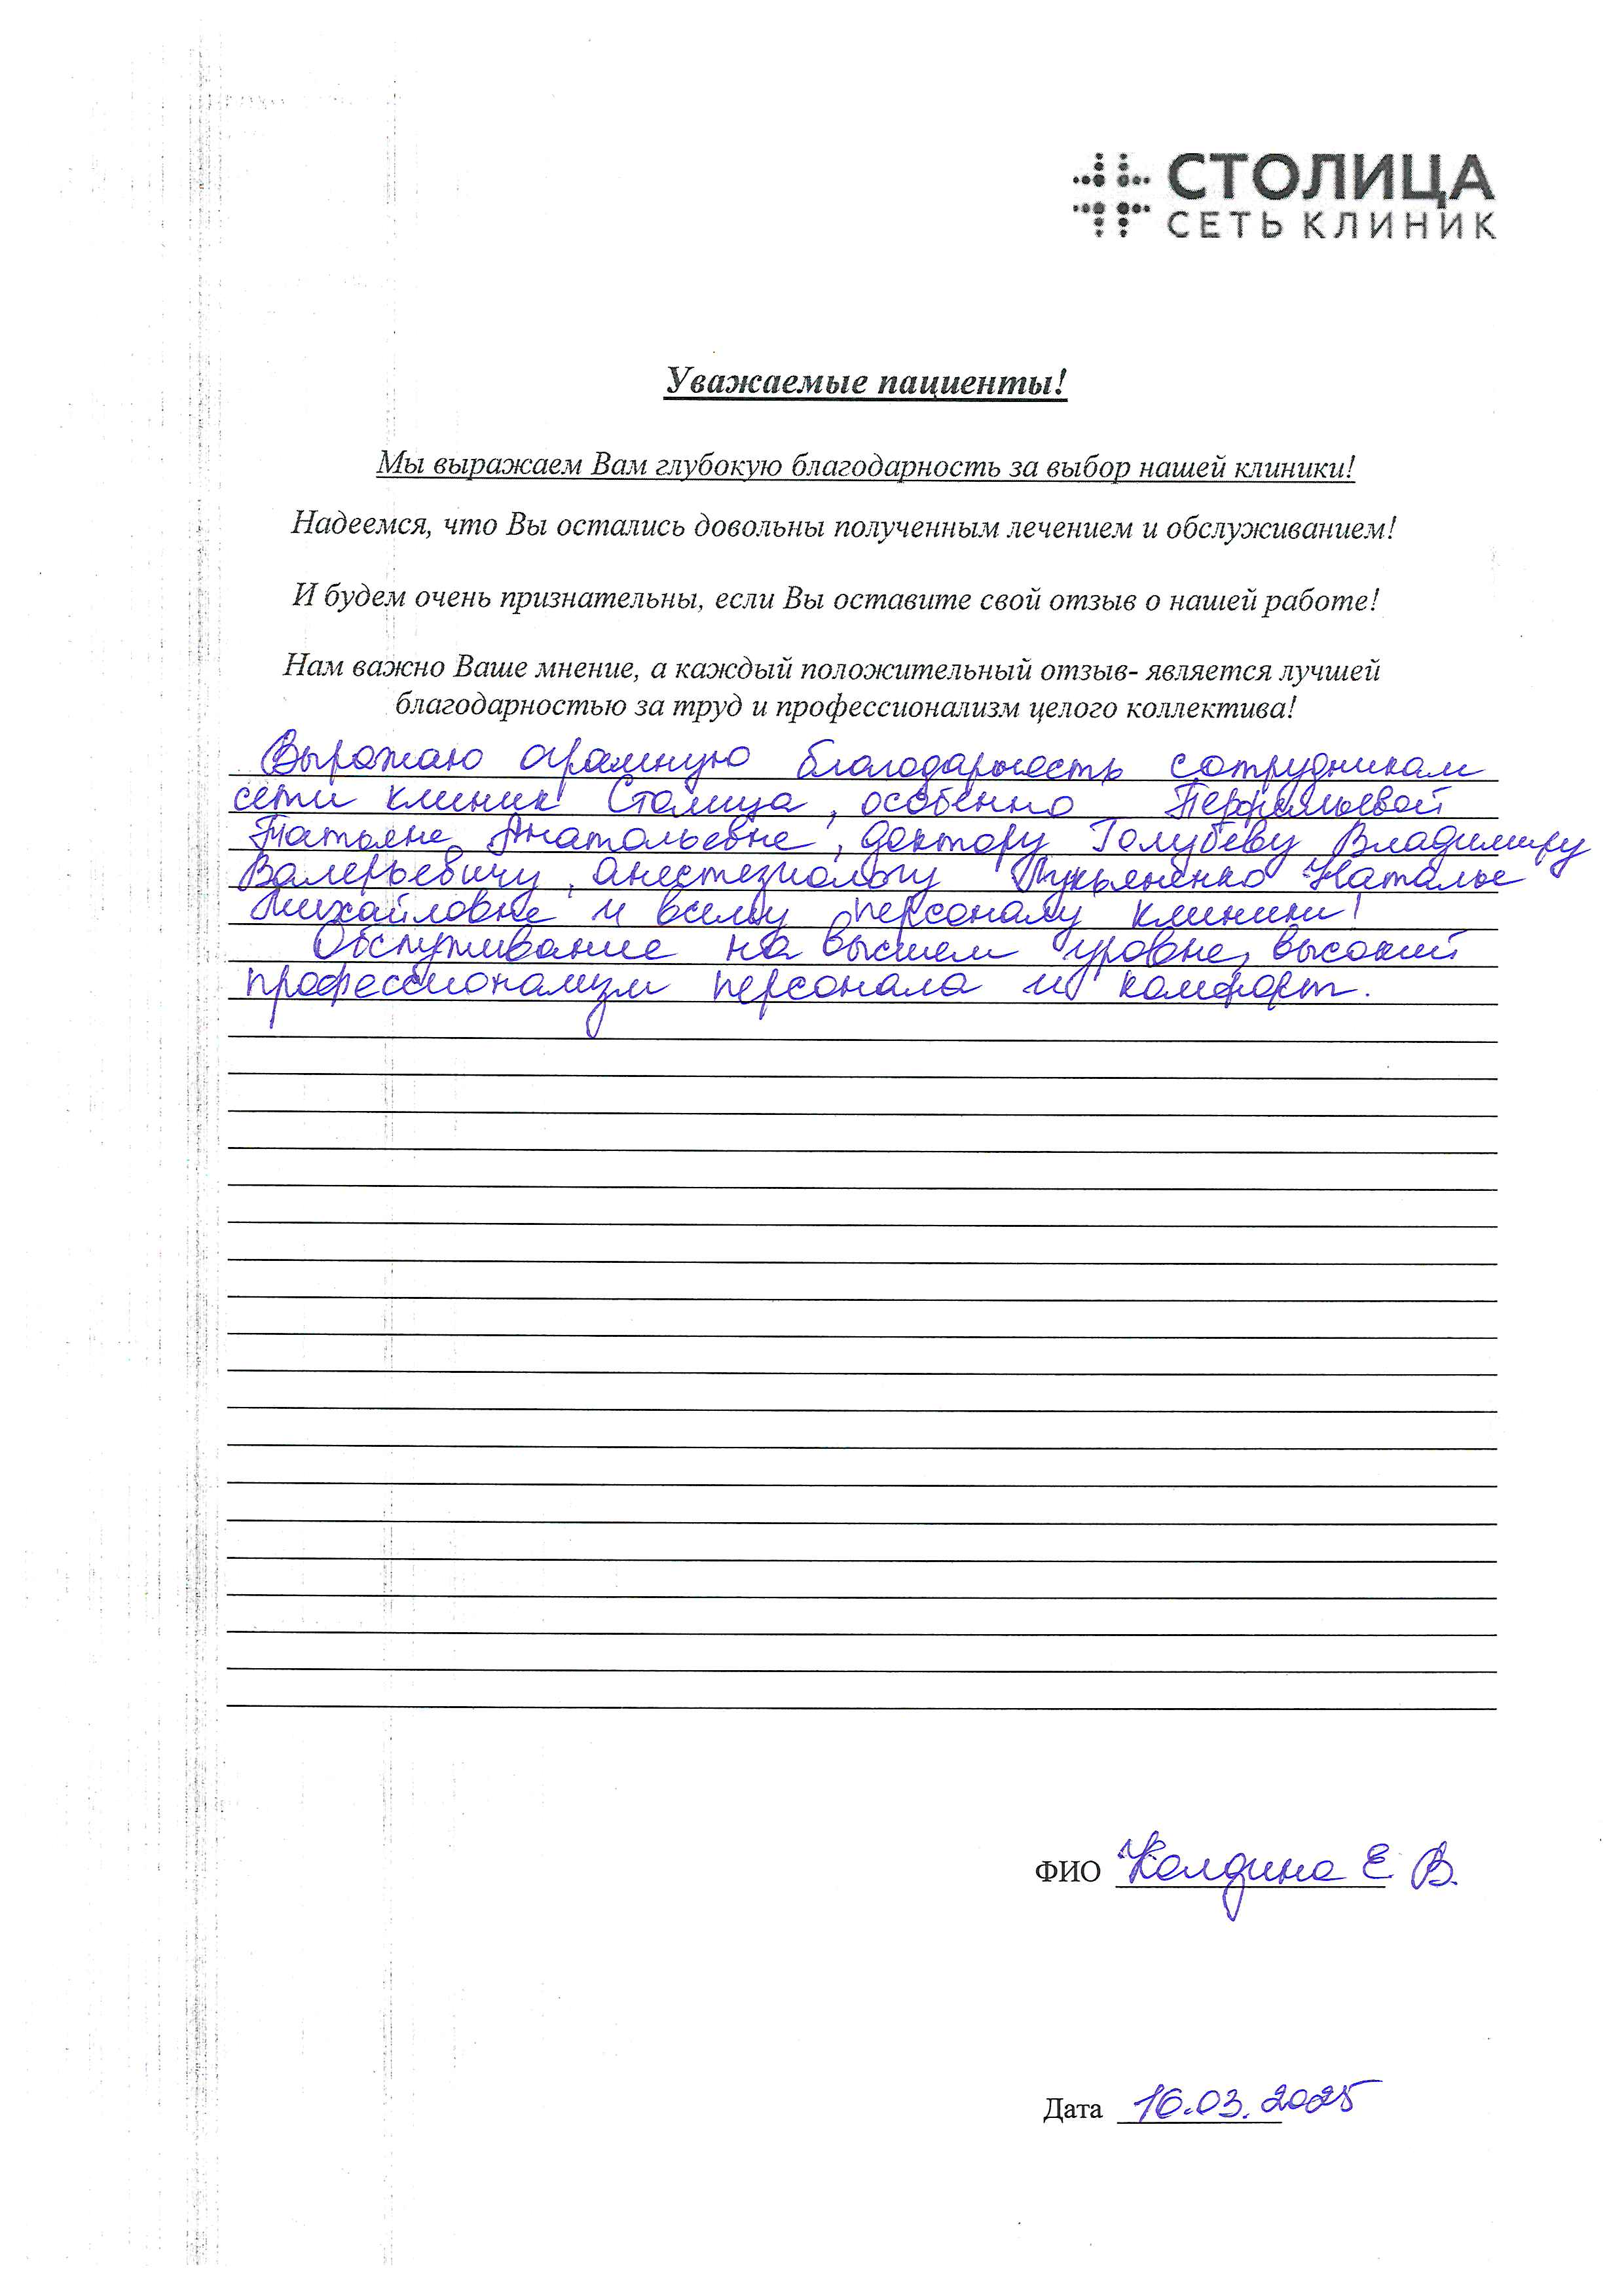 СТОЛИЦА
СЕТЬ КЛИНИК
Уважаемые пациенты!
Мы выражаем Вам глубокую благодарность за выбор нашей клиники!
Надеемся, что Вы остались довольны полученным лечением и обслуживанием!
И будем очень признательны, если Вы оставите свой отзыв о нашей работе!
Нам важно Ваше мнение, а каждый положительный отзыв- является лучшей
благодарностью за труд и профессионализм целого коллектива!
Выражаю огромную благодарность сотрудникам
сети клиник Столица, особенно Перфильевой
Татьяне Анатольевне, доктору Голубеву Владимиру
Валерьевичу, анестезиологу Лукьяненко Наталье
Михайловне и всему персоналу клиники!
Обслуживание на высшем уровне, высокий
профессионализм персонала и комфорт.
ФИО Колдина Е В.
Дата 16.03.2025